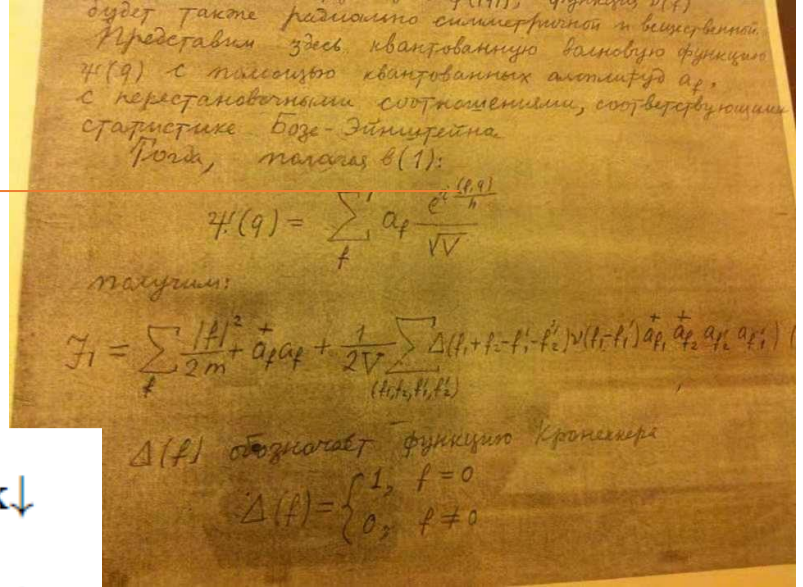 будет также радиально симметричной и вещественной.
Представим здесь квантованную волновую функцию
Ψ(q) с помощью квантованных амплитуд a_f.
с перестановочными соотношениями, соответствующими
статистике Бозе-Эйнштейна.
Тогда, полагая в (1):
Ψ(q) = ∑_f a_f e^{i (f,q)/h} / √V
получим:
∑_f |f|²/2m + a⁺_f a_f + 1/2V ∑_{(f₁,f₂,f₁',f₂')} Δ(f₁+f₂-f₁'-f₂') ν(f₁-f₁') a⁺_{f₁} a⁺_{f₂} a_{f₂'} a_{f₁'}
Δ(f) обозначает функцию Кронеккера
Δ(f) = { 1, f = 0
0, f ≠ 0
↓